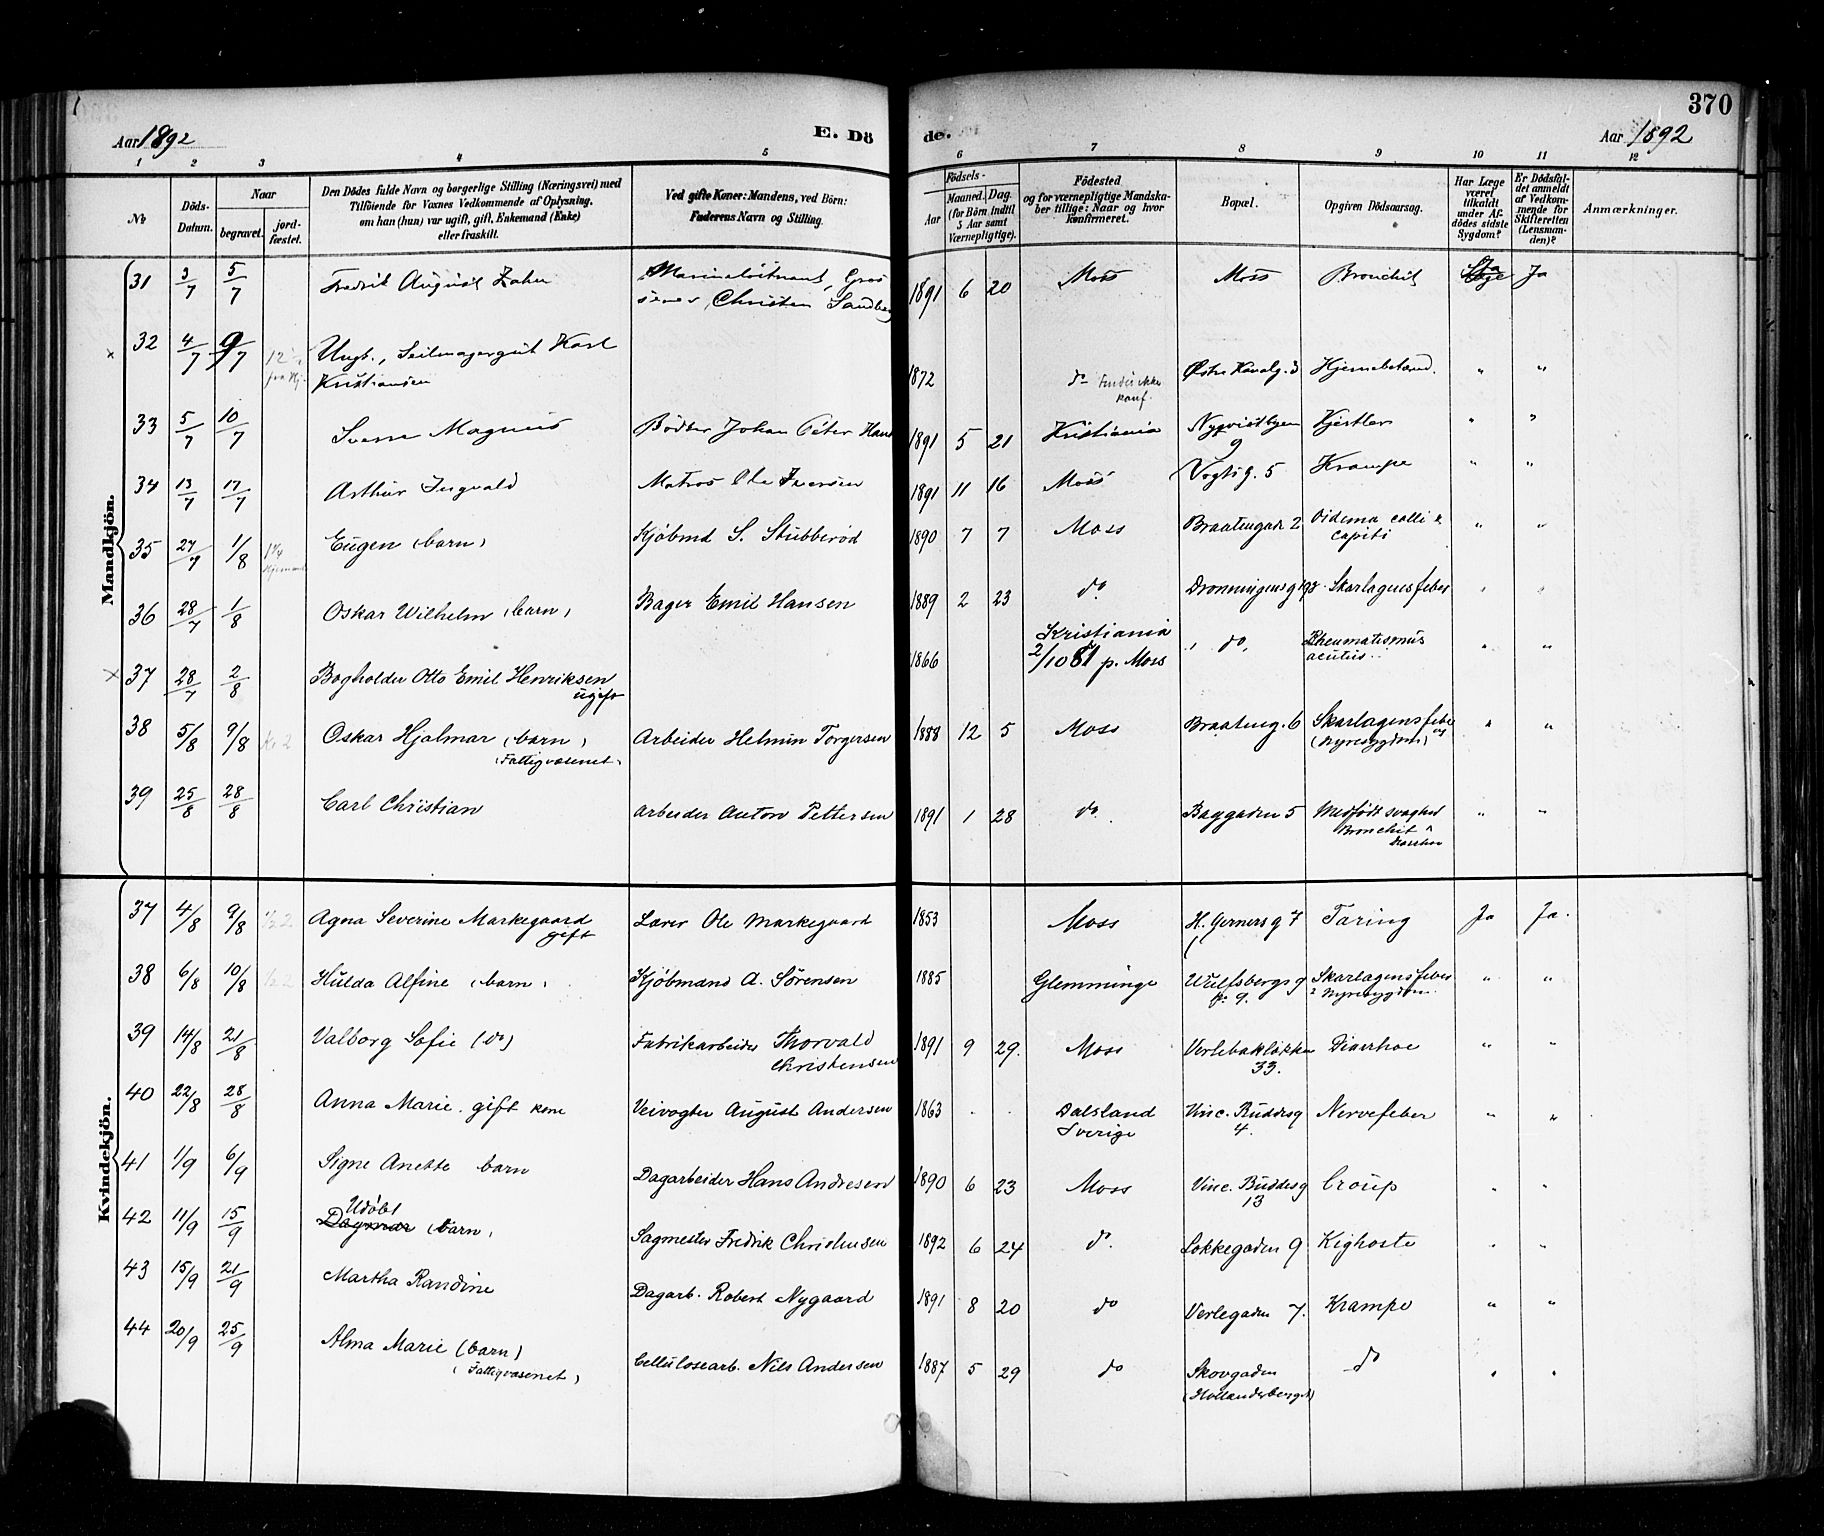 370
Aar 1892 E. Dö de. Aar 1892
1 2 3 4 5 6 7 8 9 10 11 12
№
Döds-
Datum.
Naar
begravet.
jord-
fæstet.
Den Dödes fulde Navn og borgerlige Stilling (Næringsvei) med
Tilföiende for Voxnes Vedkommende af Oplysning,
om han (hun) var ugift, gift, Enkemand (Enke)
eller fraskilt.
Ved gifte Koner: Mandens, ved Börn:
Faderens Navn og Stilling.
Födsels-
Aar
Maaned. Dag.
(for Börn indtil
5 Aar samt
Værnepligtige).
Födested
og for værnepligtige Mandska-
ber tillige: Naar og hvor
konfirmeret.
Bopæl.
Opgiven Dödsaarsag.
Har Læge
været
tilkaldt
under Af-
dödes sidste
Sygdom?
Er Dödsfal-
det anmeldt
af Vedkom-
mende for
Skifteretten
(Lensman-
den)?
Anmærkninger.
Mandkjön.
31 3/7 5/7 Fredrik August Marineløitnant, 1891 6 20 Moss Moss Bronchit Ja Ja
Christen Sandberg
32 4/7 9/7 Ungk., Seilmagergut Karl 1872 do Østre Kanalg. 3 Hjernebetænd. " "
Kristiansen
33 5/7 10/7 Magnus Bødker Johan Peter 1891 5 21 Kristiania 9 " "
34 13/7 17/7 Arthur Ingvald Matros Ole Iversen 1891 11 16 Moss Vogtsg. 5 Krampe " "
35 27/7 1/8 Eugen (barn) Kjöbmd S. Stubberød 1890 7 7 Moss Braatengad. 2 Oidema colli &
capiti " "
36 28/7 1/8 Oskar Wilhelm (barn) Bager Emil Hansen 1889 2 23 do Dronningensg Skarlagensfeber " "
x 37 28/7 2/8 Bogholder Otto Emil Henriksen 1866 Kristiania " do " Rheumatismus " "
ugift 2/10 81 p. Moss acutus
38 5/8 9/8 Oskar Hjalmar (barn) Arbeider Helmin Torgersen 1888 12 5 Moss Braateng. 6 Skarlagensfeber " "
(Fattigvæsenet) (Nyresygdom)
39 25/8 28/8 Carl Christian Arbeider Anton Pettersen 1891 1 28 do Baggaden 5 Medfødt svaghed " "
Bronchit
Kvindekjön.
37 4/8 9/8 Agna Severine Markegaard Lærer Ole Markegaard 1853 Moss H. Gerners g 7 Tæring Ja Ja.
gift
38 6/8 10/8 Hulda Alfine (barn) Kjöbmand A. Sörensen 1885 Glemminge Wulfsbergs g Skarlagensfeber " "
9. Nyresygdom
39 14/8 21/8 Valborg Sofie (do) Fabrikarbeider Thorvald 1891 9 29. Moss Verlebakløkken Diarrhoe " "
Christensen 33.
40 22/8 28/8 Anna Marie. gift kone Veivogter August Andersen 1863 Dalsland Vinc. Buddesg Nervefeber " "
Sverige 4.
41 1/9 6/9 Signe Anette barn Dagarbeider Hans Andresen 1890 6 23 Moss Vinc. Buddesg Croup " "
13
42 11/9 15/9 Udøbt Dagmar (barn) Sagmester Fredrik Christensen 1892 6 24 do. Løkkegaden 9 Kighoste " "
43 15/9 21/9 Martha Randine Dagarb. Robert Nygaard 1891 8 20 do Verlegaden 7. Krampe " "
44 20/9 25/9 Alma Marie (barn) Cellulosearb. Nils Andersen 1887 5 29 do Skovgaden do " "
(Fattigvæsenet)